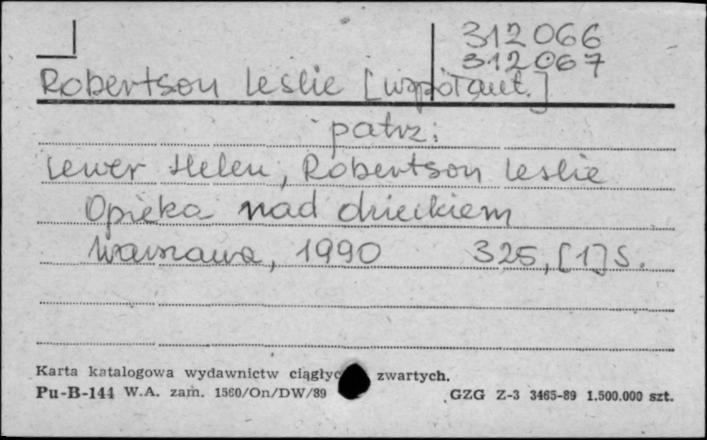 312066
312067
Robertson Leslie [współaut.]
patrz:
Lewer Helen, Robertson Leslie
Opieka nad dzieckiem
Warszawa, 1990 325, [1] s.
Karta katalogowa wydawnictw ciągłyc zwartych.
Pu-B-144 W.A. zam. 1560/On/DW/89 GZG Z-3 3465-89 1.500.000 szt.